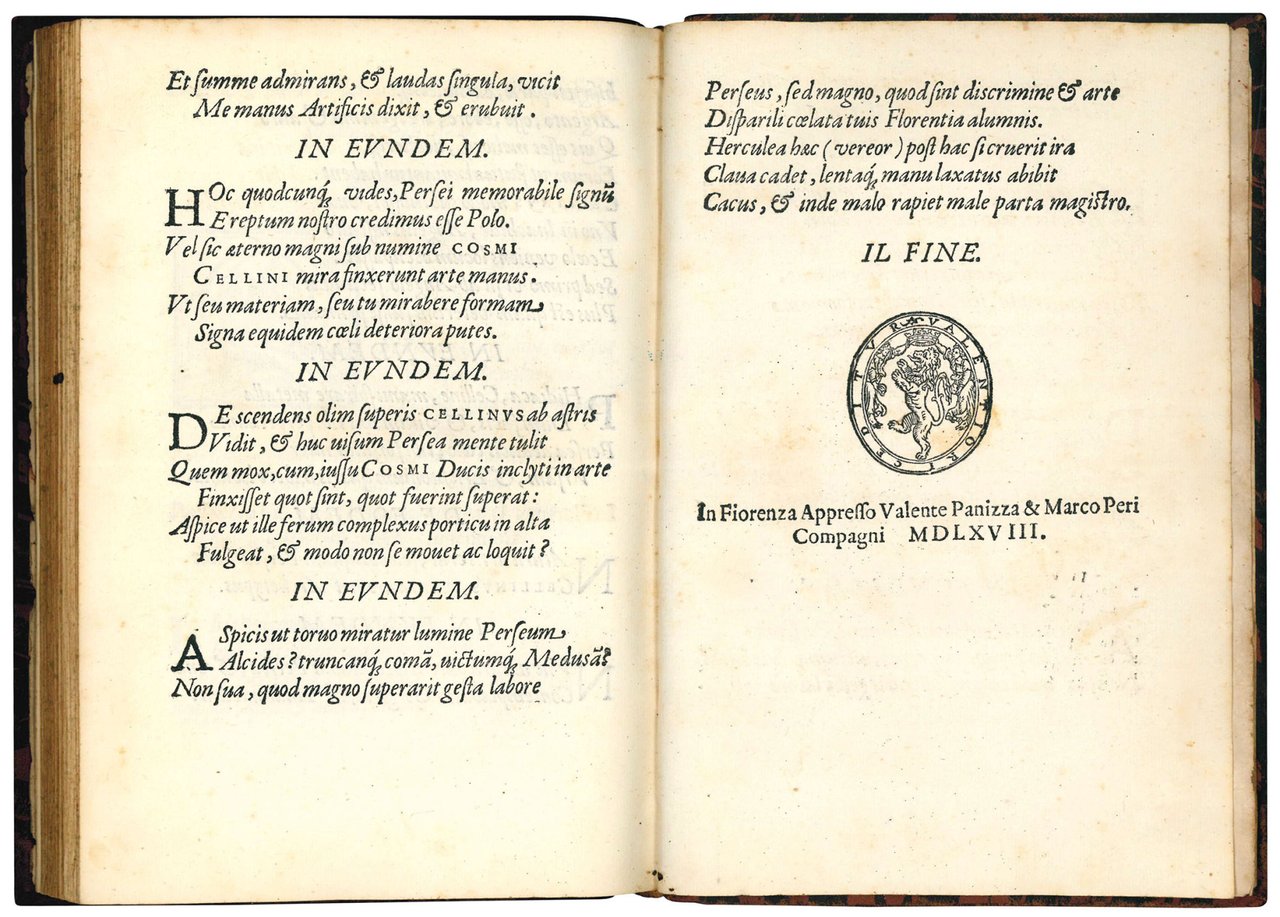 Et summe admirans, & laudas singula, vicit
Me manus Artificis dixit, & erubuit.
IN EVNDEM.
HOc quodcunq; vides, Persei memorabile signū
Ereptum nostro credimus esse Polo.
Vel sic æterno magni sub numine COSMI
CELLINI mira finxerunt arte manus.
Vt seu materiam, seu tu mirabere formam
Signa equidem cœli deteriora putes.
IN EVNDEM.
DEscendens olim superis CELLINVS ab astris
Vidit, & huc uisum Persea mente tulit
Quem mox, cum, iussu COSMI Ducis inclyti in arte
Finxisset quot sint, quot fuerint superat:
Aspice ut ille ferum complexus porticu in alta
Fulgeat, & modo non se mouet ac loquit?
IN EVNDEM.
ASpicis ut toruo miratur lumine Perseum
Alcides? truncanq; comā, uictumq; Medusā?
Non sua, quod magno superarit gesta labore
Perseus, sed magno, quod sint discrimine & arte
Disparili cœlata tuis Florentia alumnis.
Herculea hæc (vereor) post hac si cruerit ira
Claua cadet, lentaq; manu laxatus abibit
Cacus, & inde malo rapiet male parta magistro.
IL FINE.
CEDITVR VALENTIORI
In Fiorenza Appresso Valente Panizza & Marco Peri
Compagni MDLXVIII.